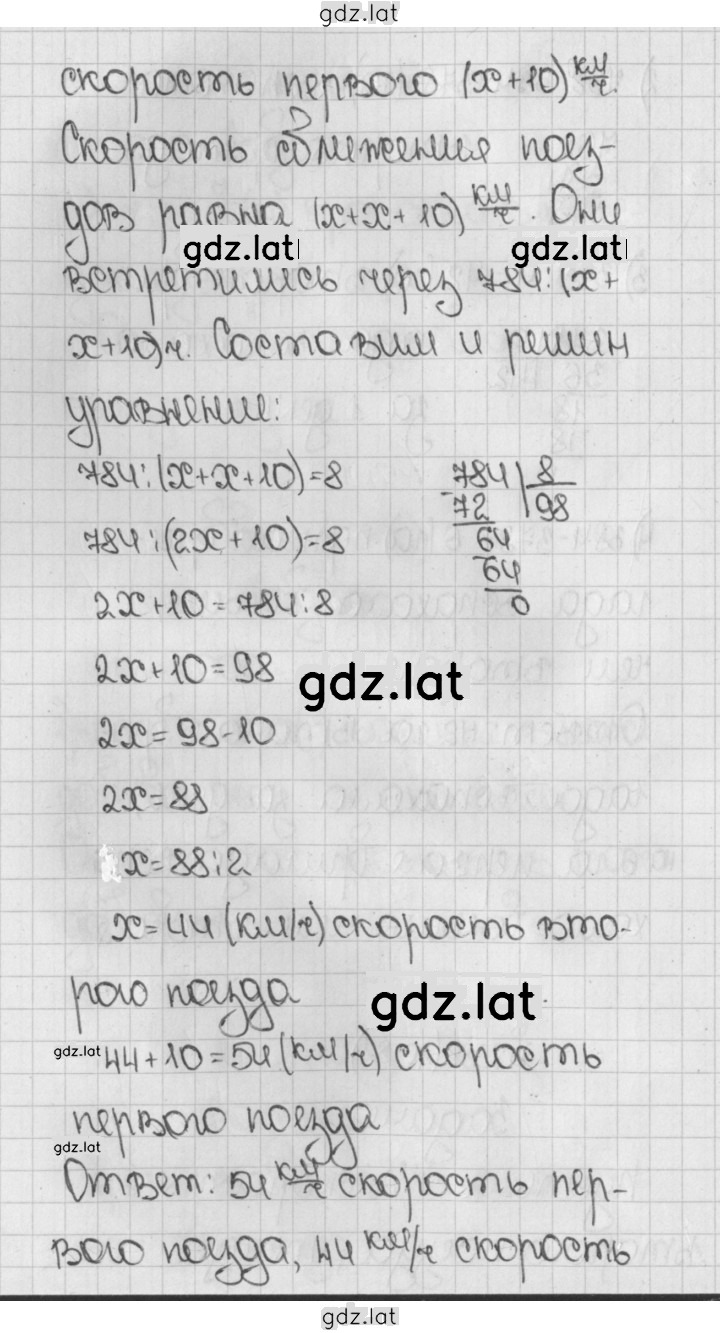 gdz.lat
скорость первого (x+10) км/ч.
Скорость сближения поез-
дов равна (x+x+10) км/ч. Они
gdz.lat gdz.lat
встретились через 784:(x+
x+10)ч. Составим и решим
уравнение:
784:(x+x+10)=8
784:(2x+10)=8
2x+10=784:8
2x+10=98
2x=98-10
2x=88
x=88:2
784 8
-72 98
64
64
0
gdz.lat
x=44 (км/ч) скорость вто-
рого поезда
gdz.lat
gdz.lat 44+10=54 (км/ч) скорость
первого поезда
gdz.lat
Ответ: 54 км/ч скорость пер-
вого поезда, 44 км/ч скорость
gdz.lat